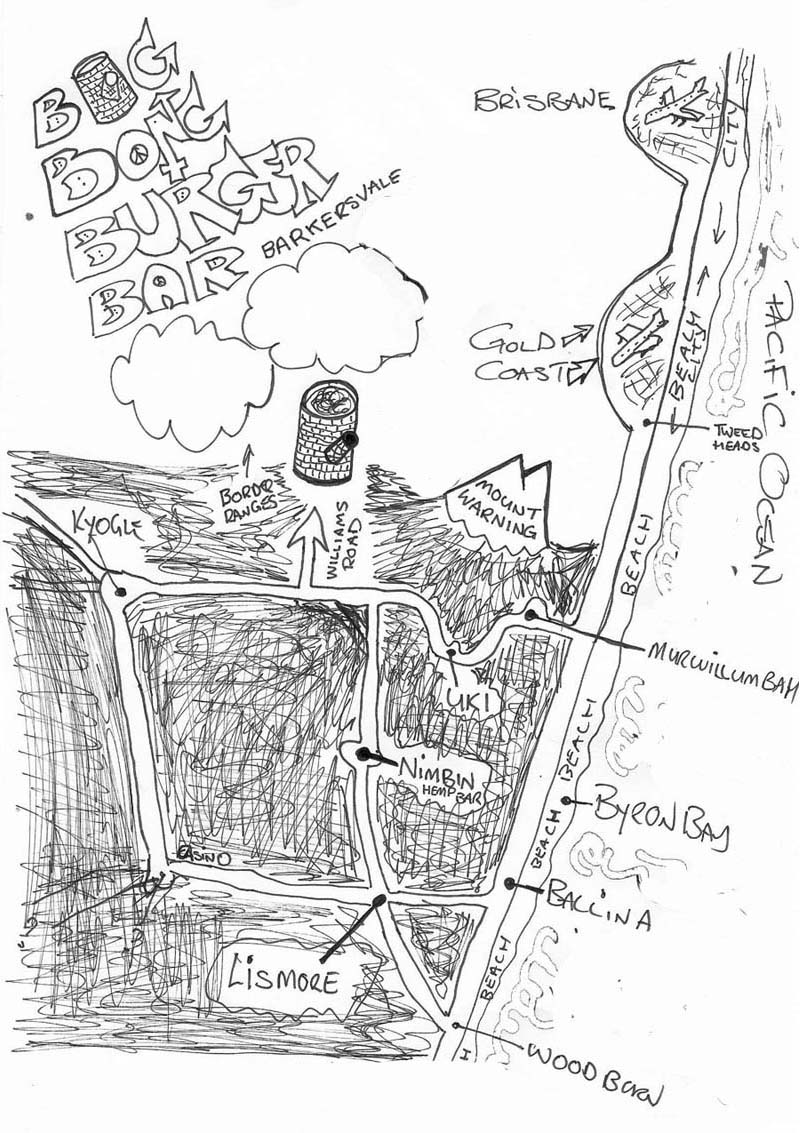 BIG
BONG
BURGER
BAR
BARKERSVALE
BRISBANE
CITY
GOLD
COAST
BEACH
CITY
TWEED
HEADS
PACIFIC OCEAN
BORDER
RANGES
WILLIAMS
ROAD
MOUNT
WARNING
KYOGLE
BEACH
MURWILLUMBAH
UKI
NIMBIN
HEMP BAR
BEACH
BYRON BAY
BEACH
CASINO
BALLINA
LISMORE
BEACH
WOODBURN